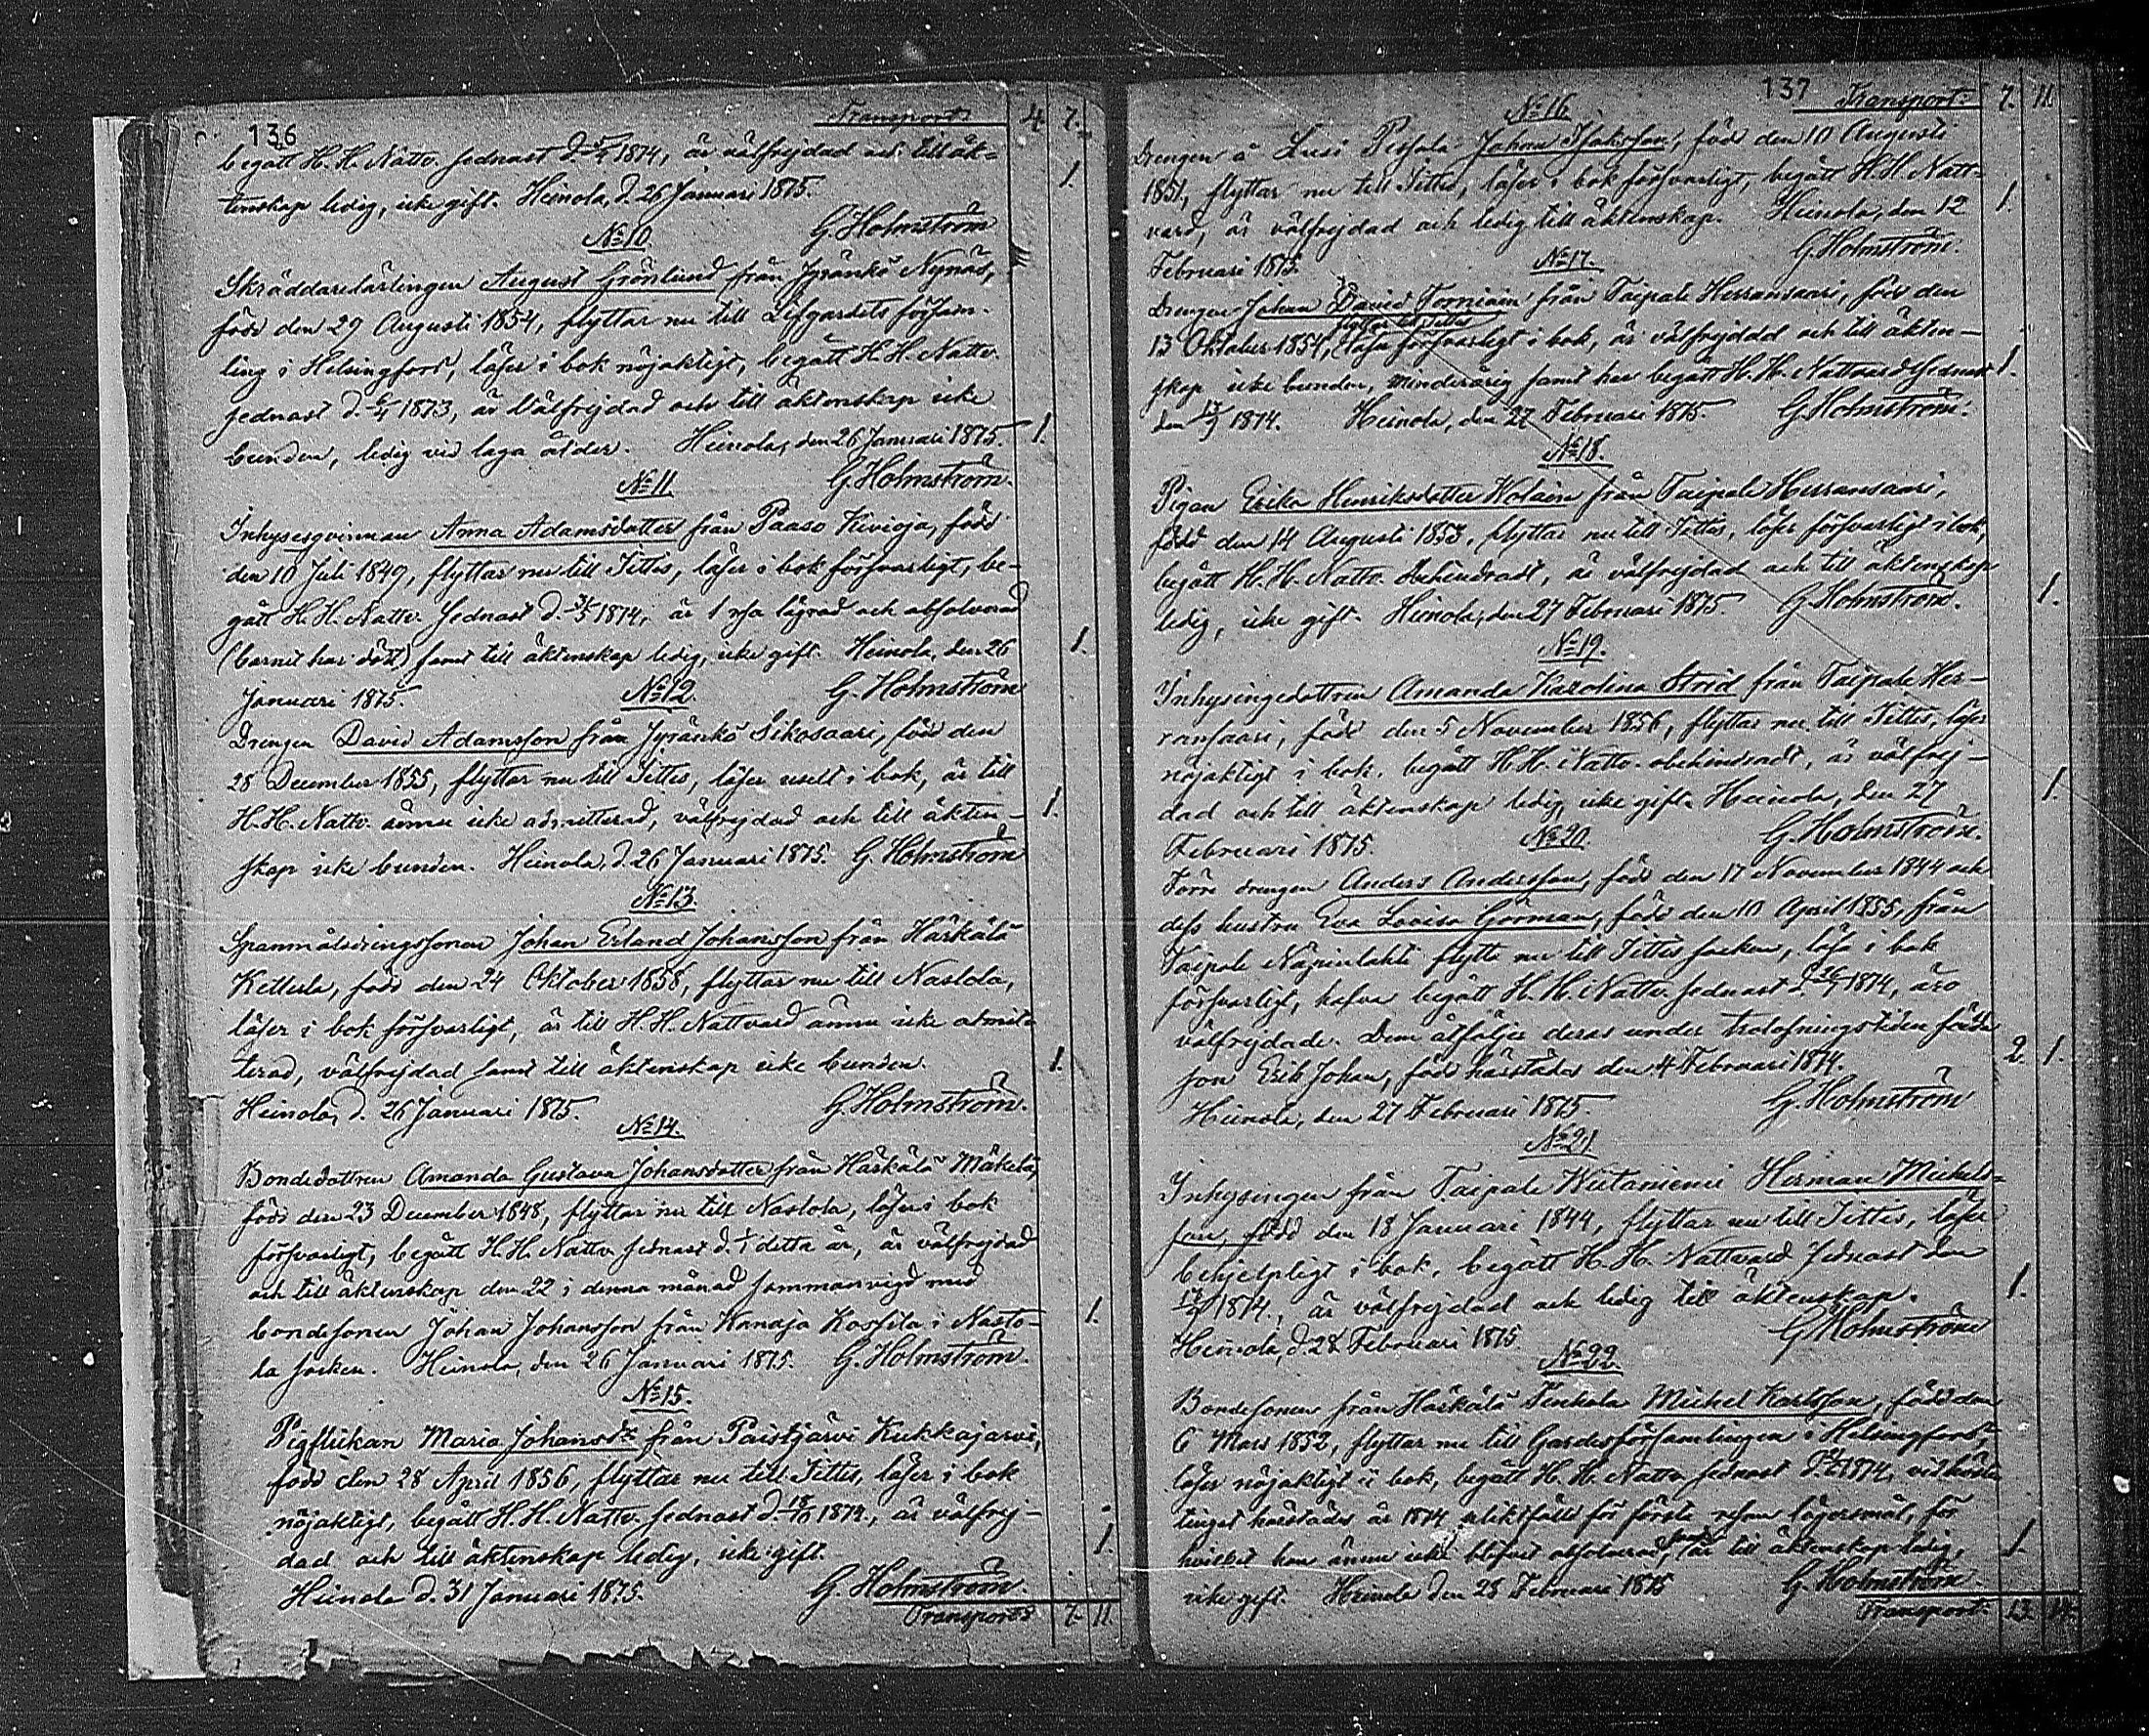 136 Transport 4. 7.
begått H. H. Nattv. sednast d. 5/4 1874, är välfrejdad och till äk-
tenskap ledig, icke gift. Heinola, d. 26 Januari 1875. 1.
G. Holmström
No 10
Skräddarelärlingen August Grönlund från Jyränkö Nynäs,
född den 29 Augusti 1854, flyttar nu till Lifgardets försam-
ling i Helsingfors, läser i bok nöjaktigt, begått H. H. Nattv.
sednast d. 6/4 1873, är Välfrejdad och till äktenskap icke
bunden, ledig vid laga ålder. Heinola, den 26 Januari 1875. 1.
No 11. G. Holmström
Inhysesqvinnan Anna Adamsdotter från Paaso Kivioja, född
den 10 Juli 1849, flyttar nu till Jittis, läser i bok försvarligt, be-
gått H. H. Nattv. sednast d. 31/5 1874, är 1 rsa lägrad och absolverad
(barnet har dött) samt till äktenskap ledig, icke gift. Heinola, den 26 1.
Januari 1875. No 12. G. Holmström
Drengen David Adamsson från Jyränkö Sikosaari, född den
28 December 1855, flyttar nu till Jittis, läser uselt i bok, är till
H. H. Nattv. ännu icke admitterad, välfrejdad och till äkten- 1.
skap icke bunden. Heinola, d. 26 Januari 1875. G. Holmström
No 13.
Spannmålsdrings sonen Johan Erland Johansson från Härkälä
Kettula, född den 24 Oktober 1858, flyttar nu till Nastola,
läser i bok försvarligt, är till H. H. Nattvard ännu icke admit-
terad, välfrejdad samt till äktenskap icke bunden. 1.
Heinola, d. 26 Januari 1875. G. Holmström.
No 14.
Bondedottren Amanda Gustava Johansdotter från Härkälä Mäkelä,
född den 23 December 1848, flyttar nu till Nastola, läser i bok
försvarligt, begått H. H. Nattv. sednast d. 1/1 detta år, är välfrejdad
och till äktenskap den 22 i denna månad sammanvigd med
bondesonen Johan Johansson från Kanaja Koskela i Nasto- 1.
la socken. Heinola, den 26 Januari 1875. G. Holmström.
No 15.
Pigflickan Maria Johansdr från Paistjärvi Kukkajarvi,
född den 28 April 1856, flyttar nu till Jittis, läser i bok
nöjaktigt, begått H. H. Nattv. sednast d. 18/10 1874, är välfrej-
dad och till äktenskap ledig, icke gift. 1.
Heinola d. 31 Januari 1875. G. Holmström.
Transport 7. 11.
137 Transport. 7. 11.
No 16
Drengen å Lusi Johan Isaksson, född den 10 Augusti
1851, flyttar nu till Jittis, läser i bok försvarligt, begått H. H. Natt-
vard, är välfrejdad och ledig till äktenskap. Heinola, den 12 1.
Februari 1875. No 17. G. Holmström.
Drengen Johan David Torniain från Taipale Herransaari, född den
flyttar till Jittis
13 Oktober 1854, läser försvarligt i bok, är välfrejdad och till äkten-
skap icke bunden, minderårig samt har begått H. H. Nattvard sednast 1.
den 13/9 1874. Heinola, den 27 Februari 1875. G. Holmström.
No 18.
Pigan Erika Henriksdotter Kolain från Taipale Herransaari,
född den 14 Augusti 1853, flyttar nu till Jittis, läser försvarligt i bok,
begått H. H. Nattv. obehindradt, är välfrejdad och till äktenskap
ledig, icke gift. Heinola, den 27 Februari 1875. G. Holmström. 1.
No 19.
Inhysingedottren Amanda Karolina Strid från Taipale Her-
ransaari, född den 5 November 1856, flyttar nu till Jittis, läser
nöjaktigt i bok, begått H. H. Nattv. obehindradt, är välfrej-
dad och till äktenskap ledig, icke gift. Heinola, den 27 1.
Februari 1875. No 20. G. Holmström.
Förre drengen Anders Andersson, född den 17 November 1844 och
dess hustru Eva Lovisa Görman, född den 10 April 1855, från
Taipale Näpinlahti flytta nu till Jittis socken, läsa i bok
försvarligt, hafva begått H. H. Nattv. sednast d. 26/7 1874, äro
välfrejdade. Dem åtföljer deras under trolofningstiden födde
son Erik Johan, född härstädes den 4 Februari 1874. 2. 1.
Heinola, den 27 Februari 1875. G. Holmström
No 21
Inhysingen från Taipale Wiitaniemi Herman Michels-
son, född den 18 Januari 1844, flyttar nu till Jittis, läser
behjelpligt i bok, begått H. H. Nattvard sednast den
13/9 1874, är välfrejdad och ledig till äktenskap. 1.
Heinola, d. 28 Februari 1875. G. Holmström
No 22.
Bondesonen från Härkälä Tenkola Michel Karlsson, född den
6 Mars 1852, flyttar nu till Gardesförsamlingen i Helsingfors,
läser nöjaktigt i bok, begått H. H. Nattv. sednast 1874, vid höste
tinget härstädes år 1874 sakfälld för första resan lägersmål, för
hvilket han ännu icke blifvit absolverad, samt är till äktenskap ledig, 1.
icke gift. Heinola den 28 Februari 1875 G. Holmström.
Transport. 13. 14.